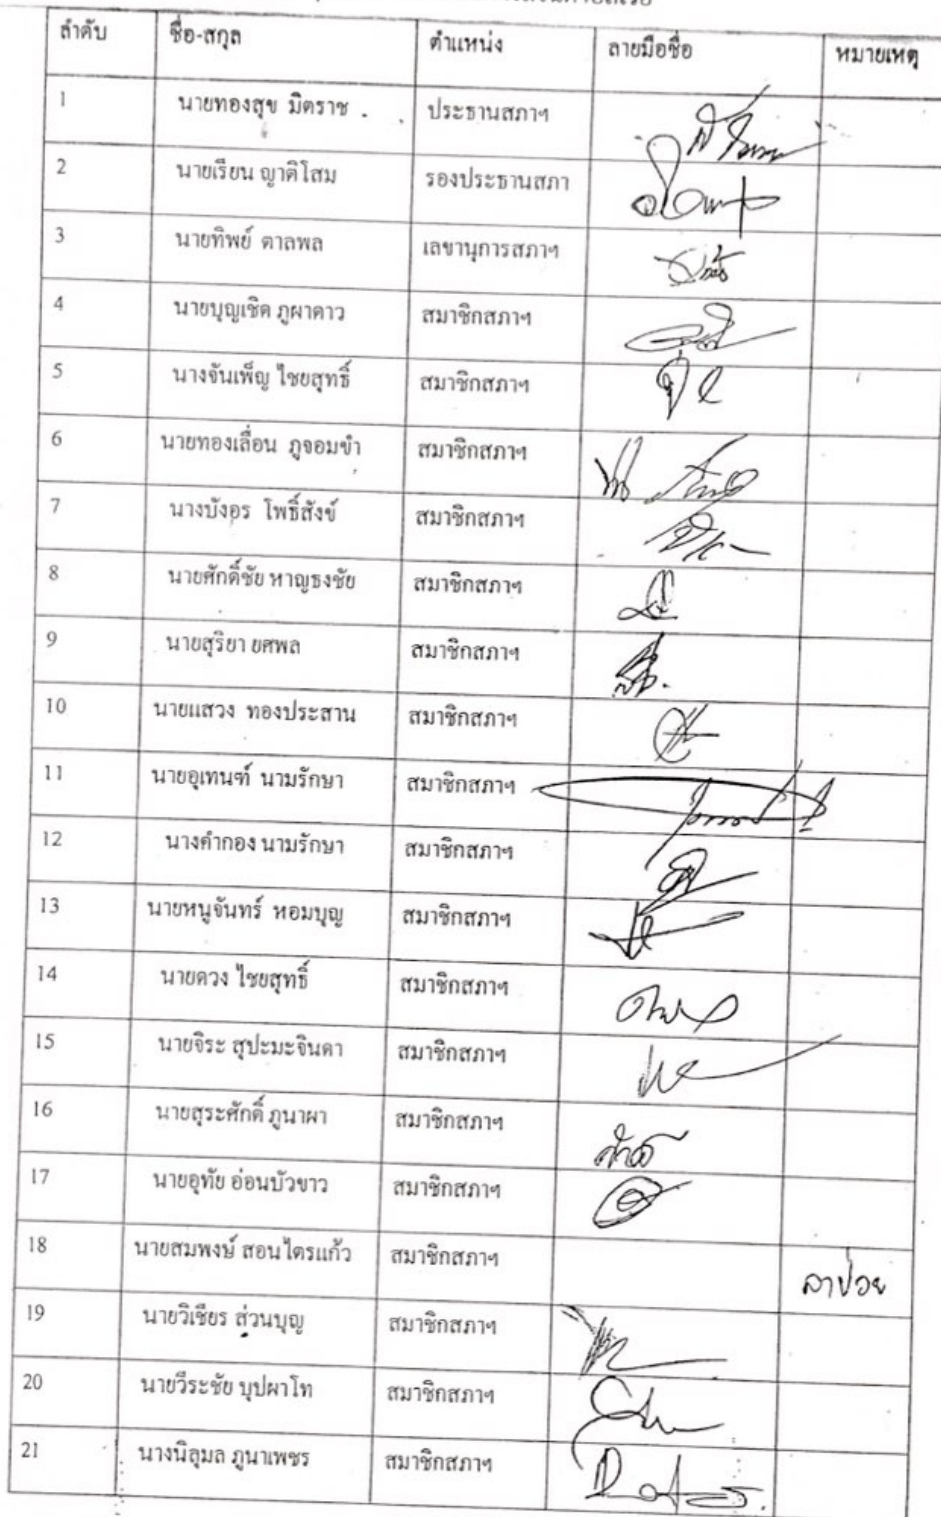 ลำดับ ชื่อ-สกุล ตำแหน่ง ลายมือชื่อ หมายเหตุ
1 นายทองสุข มิตราช ประธานสภาฯ
2 นายเรียน ญาติโสม รองประธานสภา
3 นายทิพย์ ตาลพล เลขานุการสภาฯ
4 นายบุญเชิด ภูผาดาว สมาชิกสภาฯ
5 นางจันเพ็ญ ไชยสุทธิ์ สมาชิกสภาฯ
6 นายทองเลื่อน ภูจอมขำ สมาชิกสภาฯ
7 นางบังอร โพธิ์สังข์ สมาชิกสภาฯ
8 นายศักดิ์ชัย หาญธงชัย สมาชิกสภาฯ
9 นายสุริยา ยศพล สมาชิกสภาฯ
10 นายแสวง ทองประสาน สมาชิกสภาฯ
11 นายอุเทนฑ์ นามรักษา สมาชิกสภาฯ
12 นางคำกอง นามรักษา สมาชิกสภาฯ
13 นายหนูจันทร์ หอมบุญ สมาชิกสภาฯ
14 นายดวง ไชยสุทธิ์ สมาชิกสภาฯ
15 นายจิระ สุปะมะจินดา สมาชิกสภาฯ
16 นายสุระศักดิ์ ภูนาผา สมาชิกสภาฯ
17 นายอุทัย อ่อนบัวขาว สมาชิกสภาฯ
18 นายสมพงษ์ สอนไตรแก้ว สมาชิกสภาฯ ลาป่วย
19 นายวิเชียร ส่วนบุญ สมาชิกสภาฯ
20 นายวีระชัย บุปผาโท สมาชิกสภาฯ
21 นางนิลุมล ภูนาเพชร สมาชิกสภาฯ